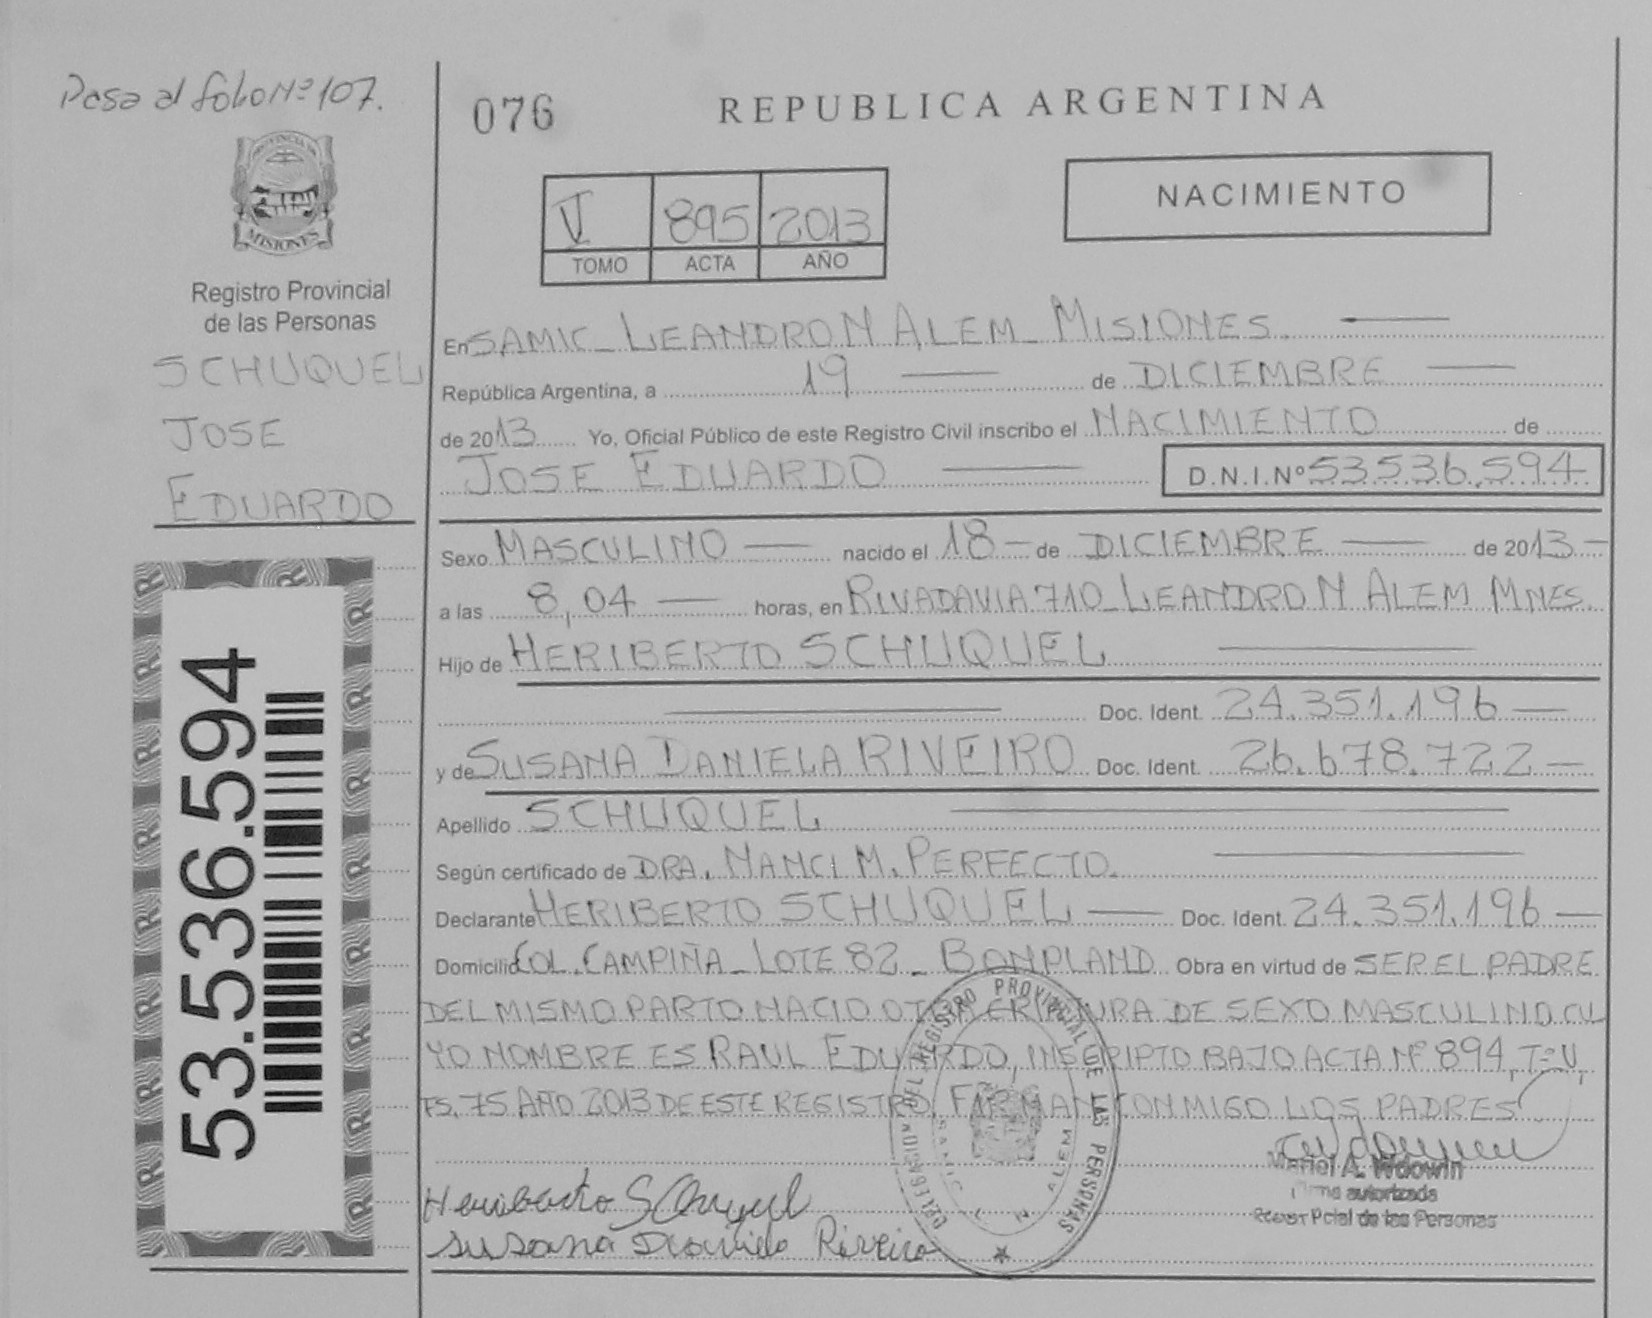 Pasa al folio Nº 107.
PROVINCIA DE
MISIONES
Registro Provincial
de las Personas
SCHUQUEL
JOSE
EDUARDO
53.536.594
076
REPUBLICA ARGENTINA
V 895 2013
TOMO ACTA AÑO
NACIMIENTO
En SAMIC_ LEANDRO N ALEM_ MISIONES.
República Argentina, a 19 de DICIEMBRE
de 2013 Yo, Oficial Público de este Registro Civil inscribo el NACIMIENTO de
JOSE EDUARDO D.N.I.Nº 53.536.594
Sexo MASCULINO nacido el 18 de DICIEMBRE de 2013
a las 8,04 horas, en RIVADAVIA 710_ LEANDRO N ALEM MNES.
Hijo de HERIBERTO SCHUQUEL
Doc. Ident. 24.351.196
y de SUSANA DANIELA RIVEIRO Doc. Ident. 26.678.722
Apellido SCHUQUEL
Según certificado de DRA. NANCI M. PERFECTO.
Declarante HERIBERTO SCHUQUEL Doc. Ident. 24.351.196
Domicilio COL. CAMPIÑA_ LOTE 82_ BONPLAND Obra en virtud de SER EL PADRE
DEL MISMO PARTO NACIO OTRA CRIATURA DE SEXO MASCULINO CU
YO NOMBRE ES RAUL EDUARDO, INSCRIPTO BAJO ACTA Nº 894, Tº V,
Fº. 75 AÑO 2013 DE ESTE REGISTRO. FIRMAN CONMIGO LOS PADRES
Mariel A. Wdowin
Firma autorizada
Regist. Pcial de las Personas
Heriberto Schuquel
Susana Daniela Riveiro
DELEGACION DEL REGISTRO PROVINCIAL DE LAS PERSONAS
SAMIC L N ALEM